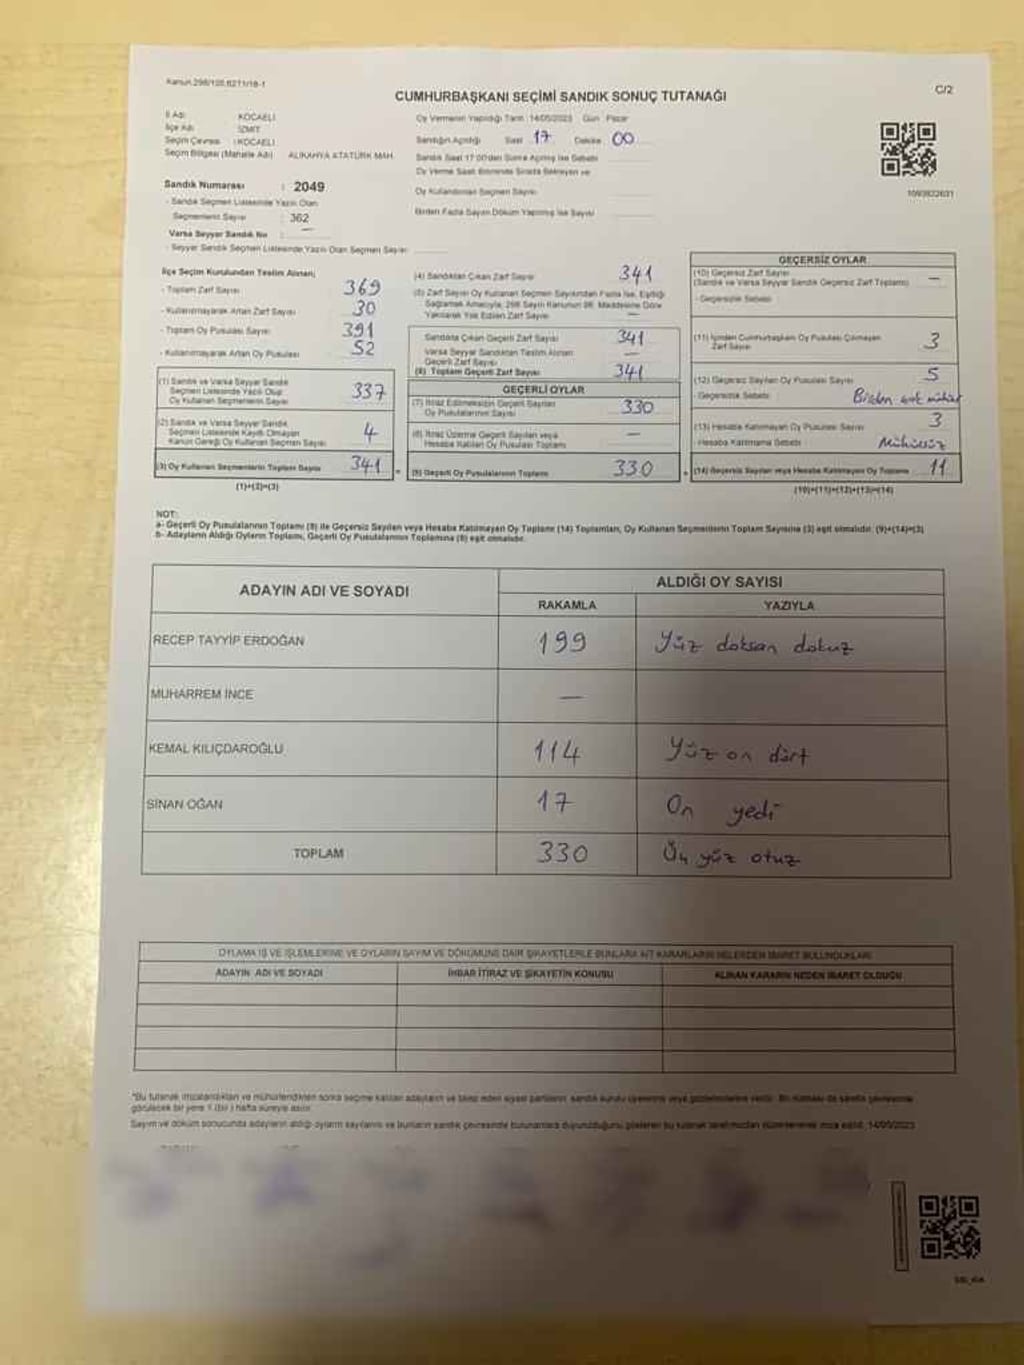 Kanun 298/105,6271/18-1
CUMHURBAŞKANI SEÇİMİ SANDIK SONUÇ TUTANAĞI
C/2
İl Adı : KOCAELİ
İlçe Adı : İZMİT
Seçim Çevresi : KOCAELİ
Seçim Bölgesi (Mahalle Adı) ALİKAHYA ATATÜRK MAH.
Sandık Numarası : 2049
- Sandık Seçmen Listesinde Yazılı Olan
Seçmenlerin Sayısı : 362
Varsa Seyyar Sandık No : —
- Seyyar Sandık Seçmen Listesinde Yazılı Olan Seçmen Sayısı
Oy Vermenin Yapıldığı Tarih 14/05/2023 Gün Pazar
Sandığın Açıldığı Saat 17 Dakika 00
Sandık Saat 17:00'den Sonra Açılmış İse Sebebi
Oy Verme Saati Bitiminde Sırada Bekleyen ve
Oy Kullandırılan Seçmen Sayısı
Birden Fazla Sayım Döküm Yapılmış İse Sayısı
1093822631
İlçe Seçim Kurulundan Teslim Alınan;
- Toplam Zarf Sayısı 369
- Kullanılmayarak Artan Zarf Sayısı 30
- Toplam Oy Pusulası Sayısı 391
- Kullanılmayarak Artan Oy Pusulası 52
(1) Sandık ve Varsa Seyyar Sandık
Seçmen Listesinde Yazılı Olup
Oy Kullanan Seçmenlerin Sayısı 337
(2) Sandık ve Varsa Seyyar Sandık
Seçmen Listesinde Kayıtlı Olmayan
Kanun Gereği Oy Kullanan Seçmen Sayısı 4
(3) Oy Kullanan Seçmenlerin Toplam Sayısı 341
(1)+(2)=(3)
(4) Sandıktan Çıkan Zarf Sayısı 341
(5) Zarf Sayısı Oy Kullanan Seçmen Sayısından Fazla İse, Eşitliği
Sağlamak Amacıyla, 298 Sayılı Kanunun 98. Maddesine Göre
Yakılarak Yok Edilen Zarf Sayısı —
Sandıkta Çıkan Geçerli Zarf Sayısı 341
Varsa Seyyar Sandıktan Teslim Alınan
Geçerli Zarf Sayısı —
(6) Toplam Geçerli Zarf Sayısı 341
GEÇERLİ OYLAR
(7) İtiraz Edilmeksizin Geçerli Sayılan
Oy Pusulalarının Sayısı 330
(8) İtiraz Üzerine Geçerli Sayılan veya
Hesaba Katılan Oy Pusulası Toplamı —
(9) Geçerli Oy Pusulalarının Toplamı 330
GEÇERSİZ OYLAR
(10) Geçersiz Zarf Sayısı —
(Sandık ve Varsa Seyyar Sandık Geçersiz Zarf Toplamı)
- Geçersizlik Sebebi
(11) İçinden Cumhurbaşkanı Oy Pusulası Çıkmayan
Zarf Sayısı 3
(12) Geçersiz Sayılan Oy Pusulası Sayısı 5
- Geçersizlik Sebebi Birden çok mühür
(13) Hesaba Katılmayan Oy Pusulası Sayısı 3
- Hesaba Katılmama Sebebi Mühürsüz
(14) Geçersiz Sayılan veya Hesaba Katılmayan Oy Toplamı 11
(10)+(11)+(12)+(13)=(14)
NOT:
a- Geçerli Oy Pusulalarının Toplamı (9) ile Geçersiz Sayılan veya Hesaba Katılmayan Oy Toplamı (14) Toplamları, Oy Kullanan Seçmenlerin Toplam Sayısına (3) eşit olmalıdır. (9)+(14)=(3)
b- Adayların Aldığı Oyların Toplamı, Geçerli Oy Pusulalarının Toplamına (9) eşit olmalıdır.
ADAYIN ADI VE SOYADI ALDIĞI OY SAYISI
RAKAMLA YAZIYLA
RECEP TAYYİP ERDOĞAN 199 Yüz doksan dokuz
MUHARREM İNCE —
KEMAL KILIÇDAROĞLU 114 Yüz on dört
SİNAN OĞAN 17 On yedi
TOPLAM 330 Üç yüz otuz
OYLAMA İŞ VE İŞLEMLERİNE VE OYLARIN SAYIM VE DÖKÜMÜNE DAİR ŞİKAYETLERLE BUNLARA AİT KARARLARIN NELERDEN İBARET BULUNDUKLARI
ADAYIN ADI VE SOYADI İHBAR İTİRAZ VE ŞİKAYETİN KONUSU ALINAN KARARIN NEDEN İBARET OLDUĞU
*Bu tutanak imzalandıktan ve mühürlendikten sonra seçime katılan adayların ve talep eden siyasi partilerin, sandık kurulu üyelerine veya gözlemcilerine verilir. Bir nüshası da sandık çevresinde
görülecek bir yere 1 (bir ) hafta süreyle asılır.
Sayım ve döküm sonucunda adayların aldığı oyların sayılarını ve bunların sandık çevresinde bulunanlara duyurulduğunu gösteren bu tutanak tarafımızdan düzenlenerek imza edildi. 14/05/2023